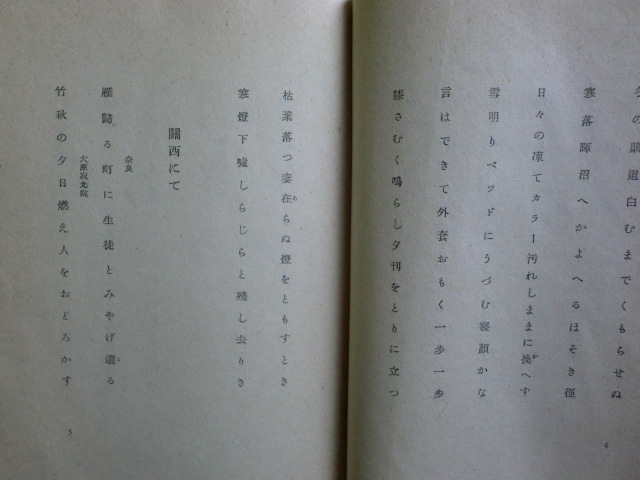 冬の扉道白むまでくもらせぬ
寒落暉沼へかよへるほそき徑
日々の凍てカラー汚れしままに換へず
雪明りベッドにうづむ寝顔かな
言はできて外套おもく一歩一歩
膝さむく鳴らし夕刊をとりに立つ
4
枯葉落つ妻在らぬ燈をともすとき
寒燈下嘘しらじらと殘し去りき
關西にて
奈良
雁歸る町に生徒とみやげ選る
大原寂光院
竹秋の夕日燃え人をおどろかす
5